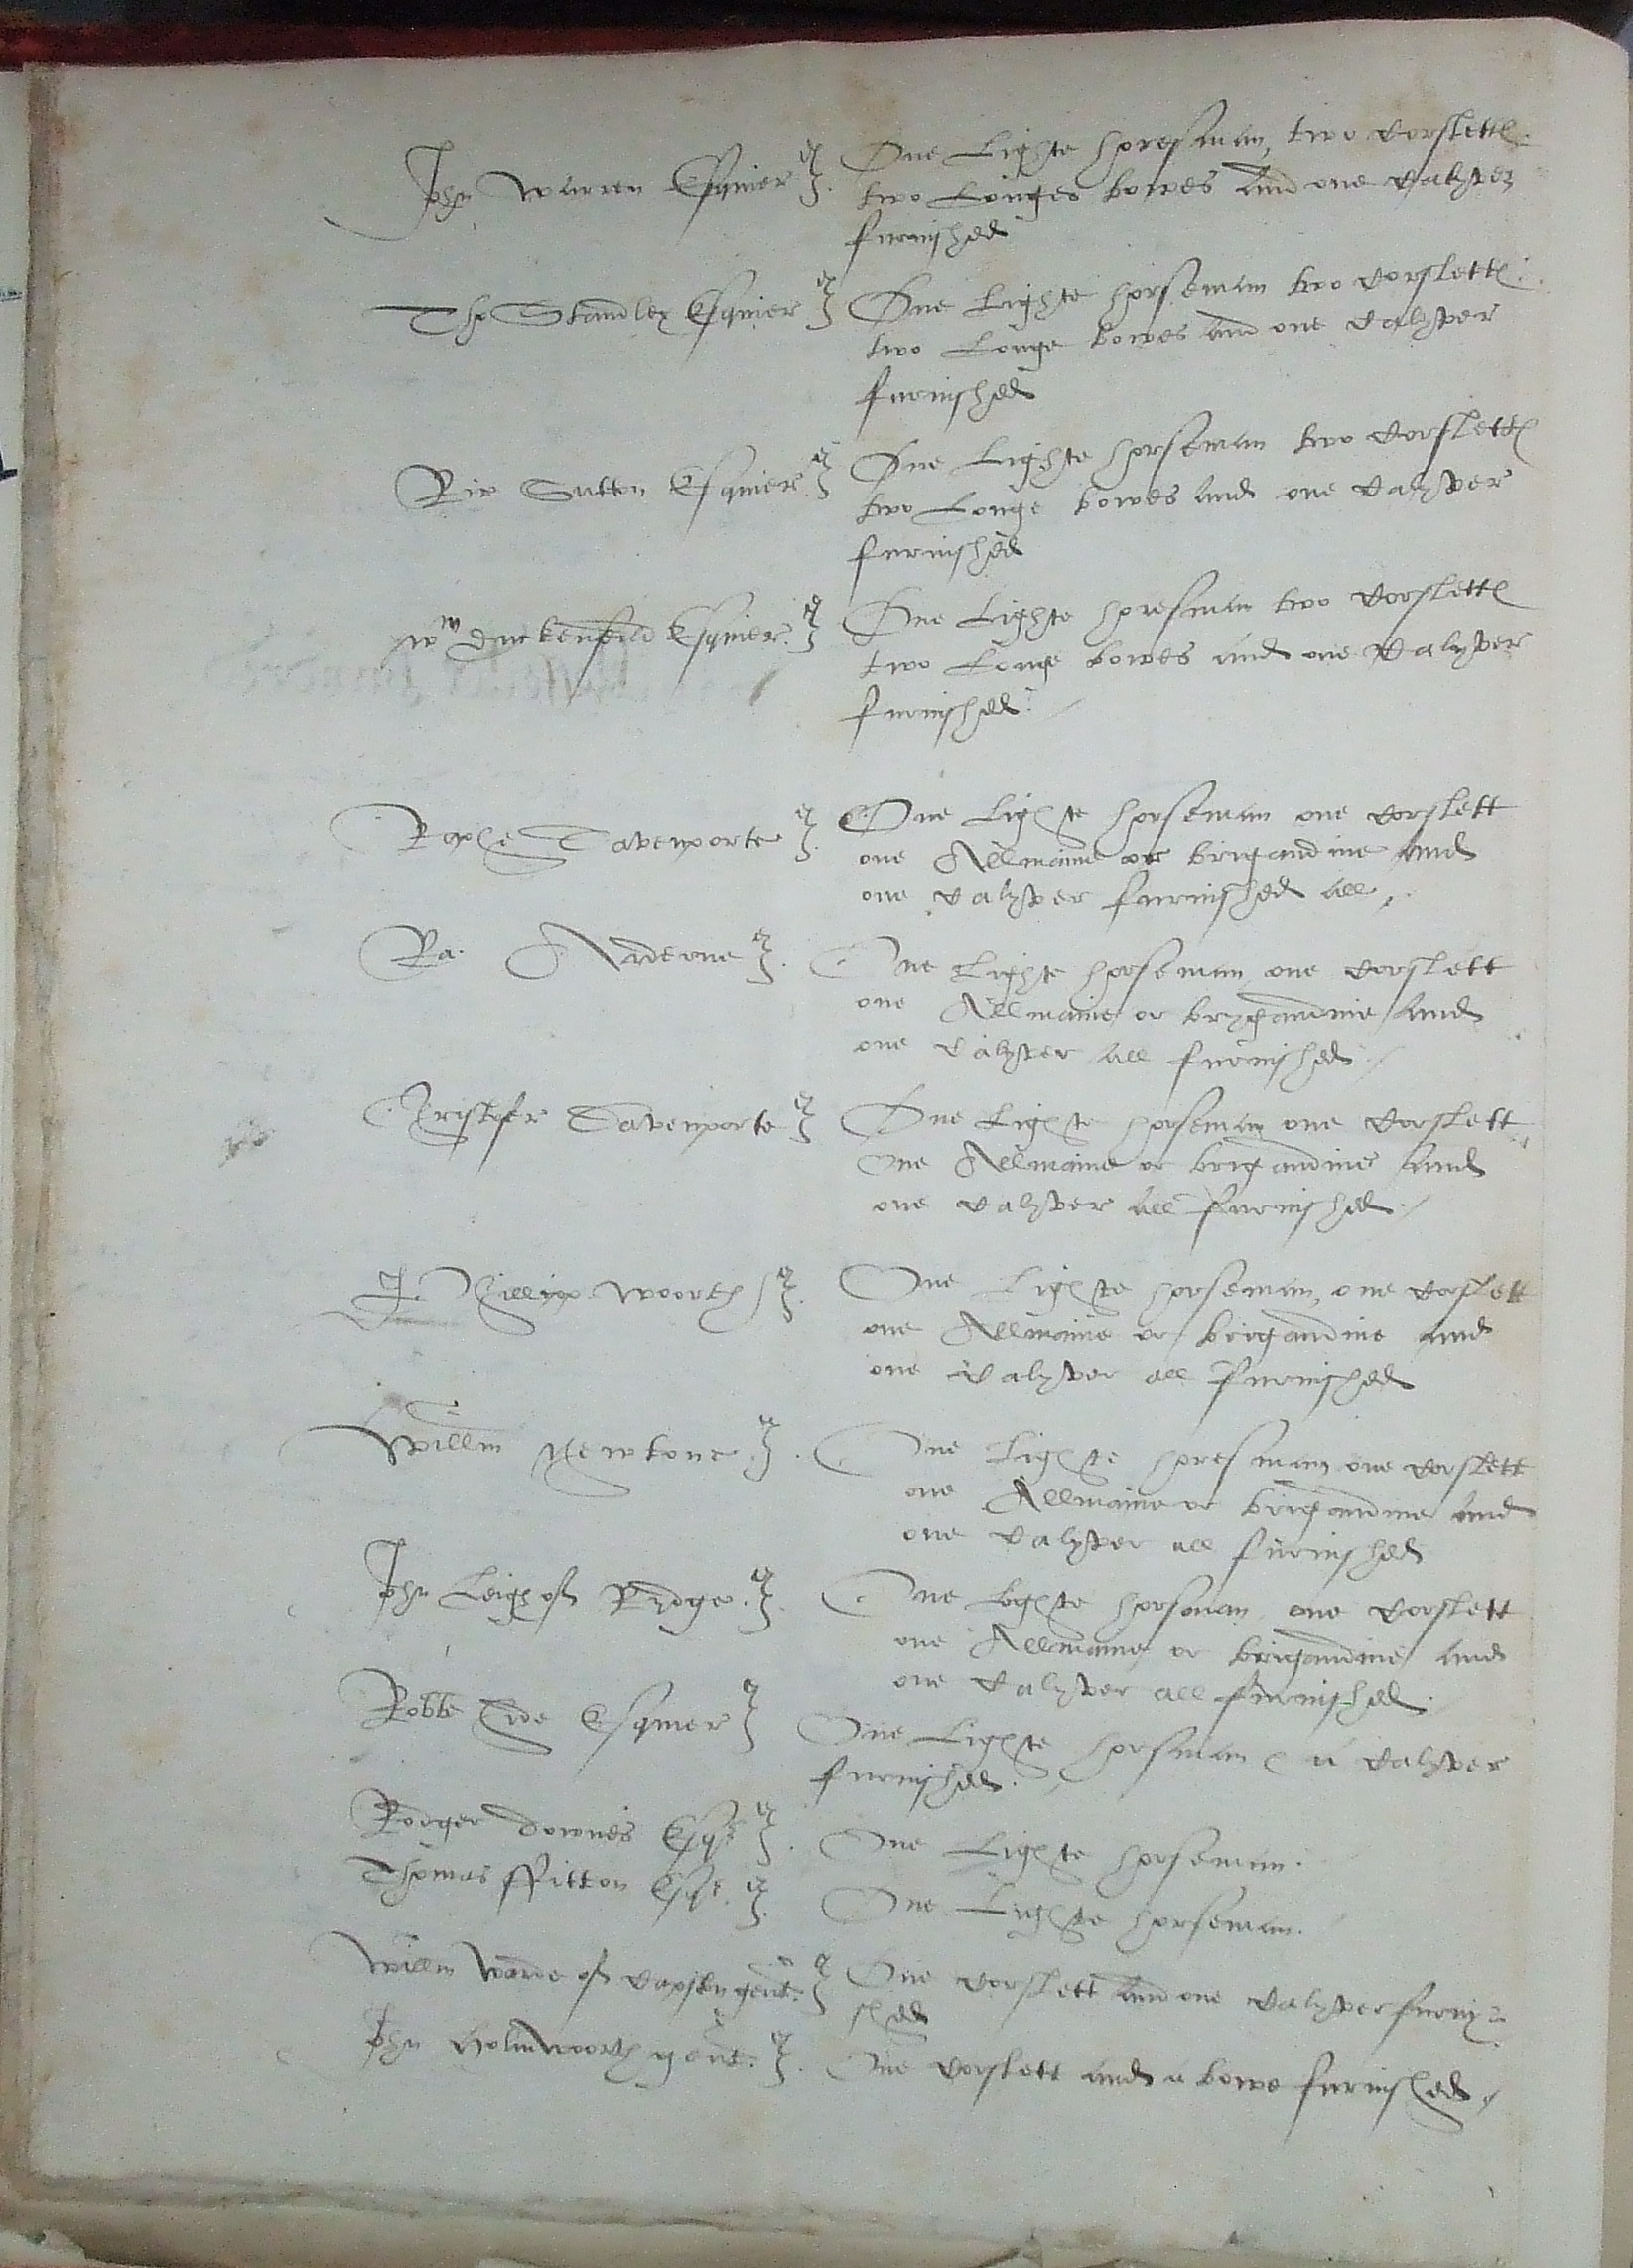 John Warren Esquier One Lighte horesman, two Corslett
two Longes bowes and one Calyver
furnished
Tho Standley Esquier One Lighte horseman two Corslett
two Longe bowes and one Calyver
furnished
Ric Sutton Esquier One Lighte horseman two Corslett
two Longe bowes and one Calyver
furnished
Wm Duckenfeild Esquier One Lighte horesman two Corslett
two Longe bowes and one Calyver
furnished
Raphe Davenporte One Lighte horseman one Corslett
one Allmaine or brigandine and
one Calyver furnished all
Ra. Arderne One Lighte horseman, one Corslett
one Allmaine or brygandine and
one Calyver all furnished
Cristofer Davenporte One Lighte horseman one Corslett
one Allmaine or brigandine and
one Calyver all furnished
Phillipp Woorth One Lighte horseman, one Corslett
one Allmaine or brigandine and
one Calyver all furnished
Willm Newtone One Lighte horesman one Corslett
one Allmaine or brigandine and
one Calyver all furnished
John Leigh of Rydge One Lighte horseman one Corslett
one Allmaine or brigandine and
one Calyver all furnished
Robte Hide Esquier One Lighte horsman & a Calyver
furnished
Rodger Downes Esqr One Lighte horseman
Thomas ffitton Esqr One Lighte horseman
Willm Warde of Capsten gent One Corslett and one Calyver furny-
shed
John Holinwoorth gent One Corslett and a bowe furnished